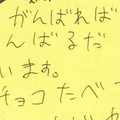 がんばれば
んばるだ
います。
チョコたべ